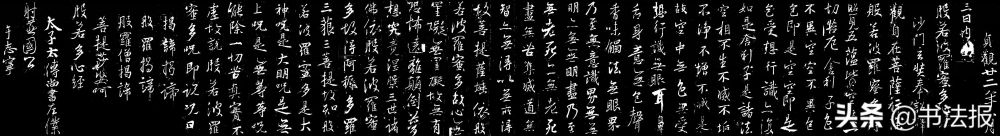 貞觀廿二
三日內出
般若波羅蜜多
沙門玄奘奉
觀自在菩薩行
般若波羅蜜多
照見五蘊皆空
切苦厄舍利子色
不異空空不異
色即是空空即是
色受想行識亦復
如是舍利子是諸法
空相不生不滅不垢
不淨不增不減是
故空中無色無受
想行識無眼耳
鼻舌身意無色聲
香味觸法無眼界
乃至無意識界無無
明亦無無明盡乃至
無老死亦無老死
盡無苦集滅道
無智亦無得以無所得
故菩提薩埵依般
若波羅蜜多故心無
罣礙無罣礙故無有
恐怖遠離顛倒夢
想究竟涅槃三世諸
佛依般若波羅蜜
多故得阿耨多羅
三藐三菩提故知般
若波羅蜜多是大
神咒是大明咒是無
上咒是無等等咒
能除一切苦真實不
虛故說般若波羅
蜜多咒即說咒曰
揭諦揭諦
般羅揭諦
般羅僧揭諦
菩提莎婆訶
般若多心經
太子太傅尚書左僕
射燕國公
于志寧
头条@书法报